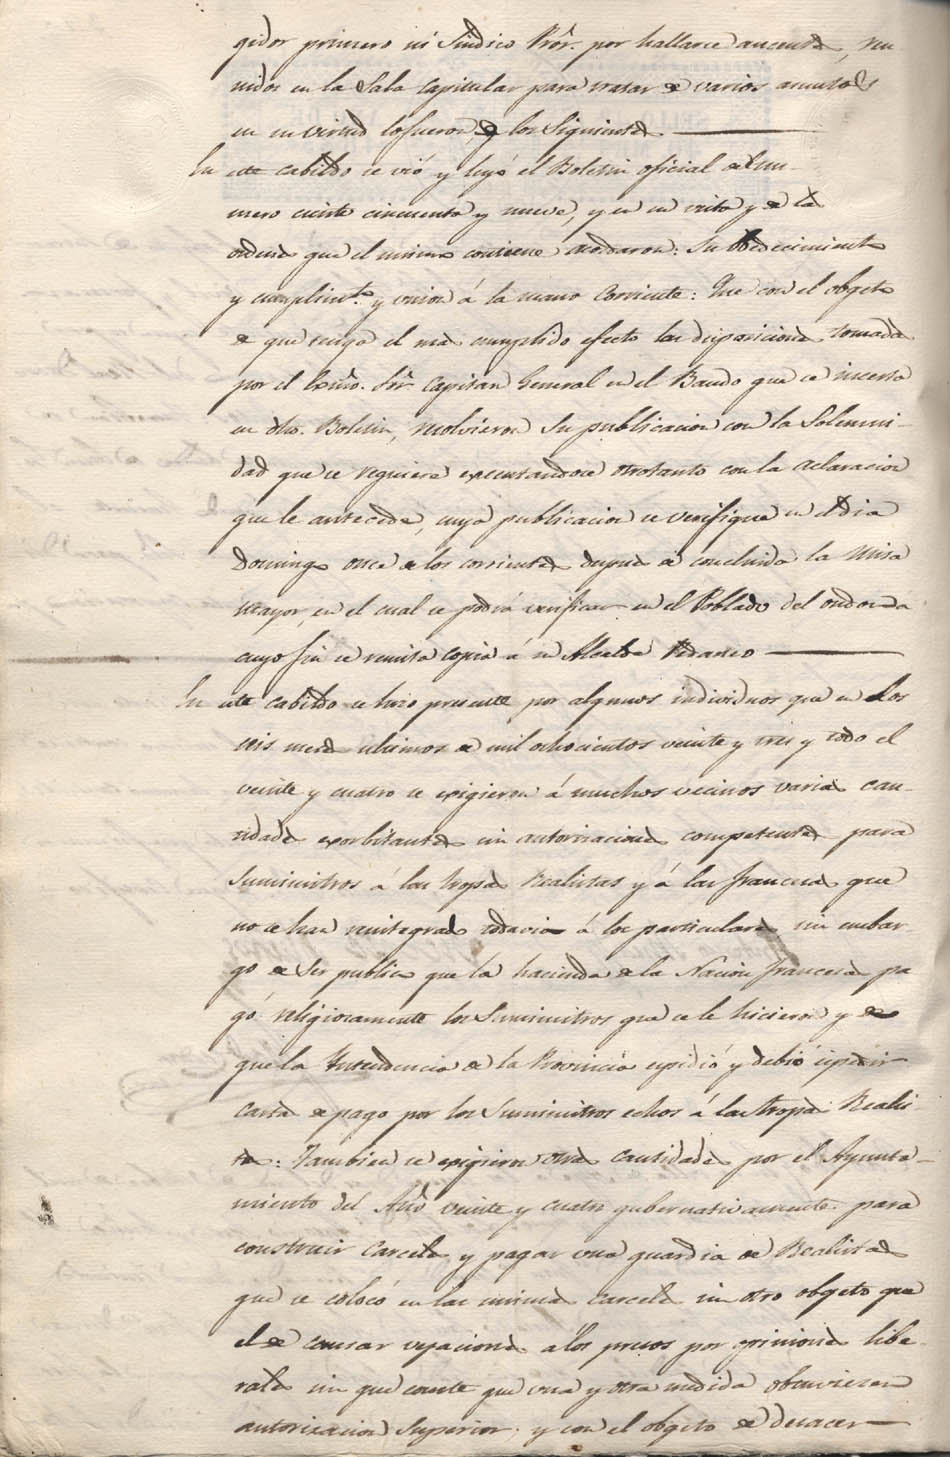 gidor primero ni Sindico Prôr. por hallarce aucentes, reu-
nidos en la Sala Capitular para tratar de varios asuntos
en su virtud lo fueron de los Siguientes
En este cabildo se vió y leyó el Boletin oficial del nu-
mero ciento cincuenta y nueve, y en su vista y de las
ordenes que el mismo contiene acordaron: Su obedecimiento
y cumplimto. y union á la mano Corriente: Que con el objeto
de que tenga el mas cumplido efecto las disposiciones tomadas
por el Exmo. Sor. Capitan General en el Bando que se incerta
en dho. Boletin, resolvieron Su publicacion con la Solemni-
dad que se requiere executandoce otrotanto con la aclaracion
que le antecede, cuya publicacion se verifique en el dia
Domingo once de los corrientes despues de concluida la Misa
mayor, en el cual se podrá verificar en el Poblado del
cuyo fin se remita copia á su Alcalde Pedaneo
En este cabildo se hizo presente por algunos individuos que en Los
seis meses ultimos de mil ochocientos veinte y tres y todo el
veinte y cuatro se exigieron á muchos vecinos varias can-
tidades exorbitantes sin autorizaciones competentes para
Suministros á las tropas Realistas y á las francesas que
no se han reintegrado todavia á los particulares sin embar-
go de Ser publico que la hacienda de la Nacion francesa pa
gó religiosamente los Suministros que se le hicieron y de
que la Intendencia de la Provincia espidió y debió espedir
Cartas de pago por los Suministros echos á las tropas Realis-
tas: Tambien se exigieron otras Cantidades por el Ayunta-
miento del Año veinte y cuatro gubernativamente para
construir Carceles y pagar una guardia de Realistas
que se colocó en las mismas Carceles sin otro objeto que
el de causar vejaciones á los presos por opiniones libe-
rales sin que conste que una y otra medida obtuvieran
autorizacion Superior, y con el objeto de deshacer